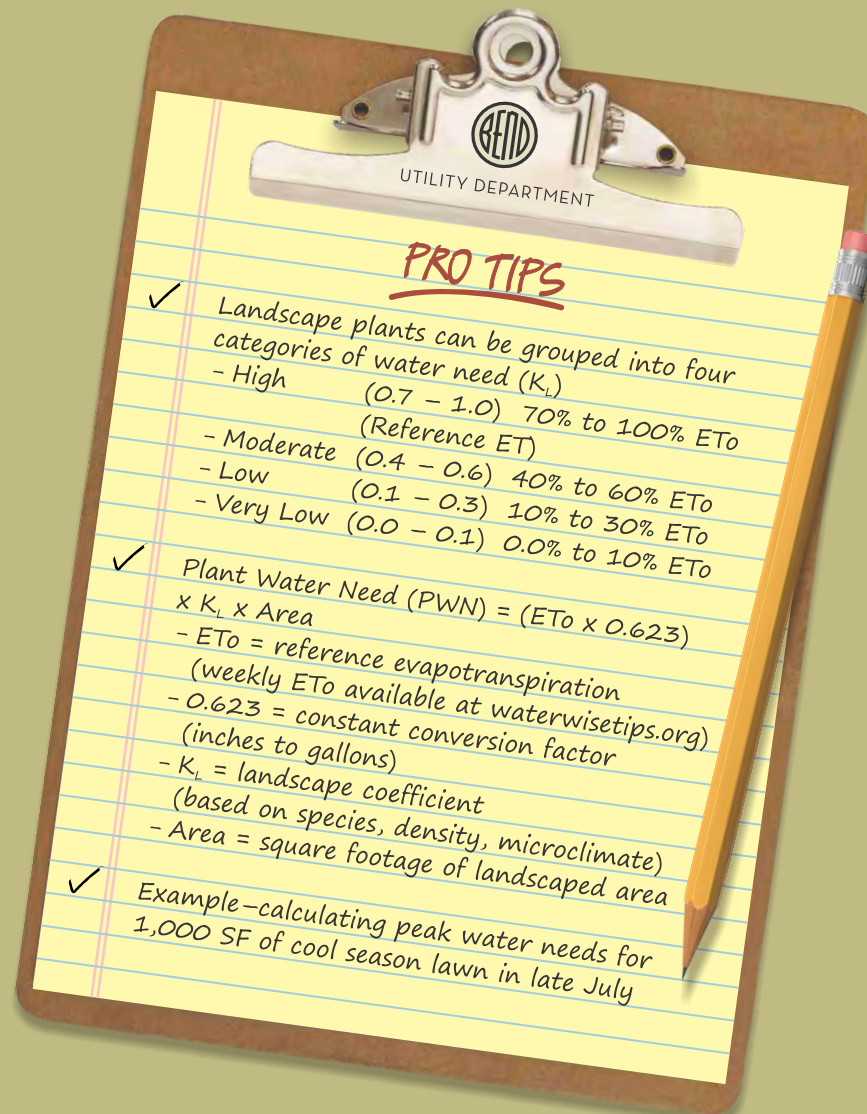 BEND
UTILITY DEPARTMENT
PRO TIPS
✓ Landscape plants can be grouped into four
categories of water need (KL)
- High (0.7 – 1.0) 70% to 100% ETo
(Reference ET)
- Moderate (0.4 – 0.6) 40% to 60% ETo
- Low (0.1 – 0.3) 10% to 30% ETo
- Very Low (0.0 – 0.1) 0.0% to 10% ETo
✓ Plant Water Need (PWN) = (ETo x 0.623)
x KL x Area
- ETo = reference evapotranspiration
(weekly ETo available at waterwisetips.org)
- 0.623 = constant conversion factor
(inches to gallons)
- KL = landscape coefficient
(based on species, density, microclimate)
- Area = square footage of landscaped area
✓ Example–calculating peak water needs for
1,000 SF of cool season lawn in late July